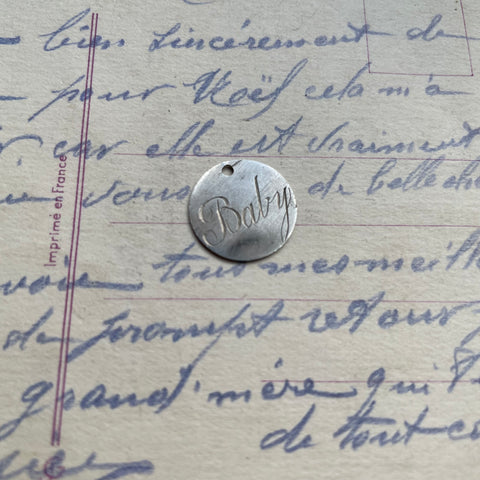 bien sincèrement de
pour Noël cela m'a
car elle est vraiment
vous de belle
Baby
Imprimé en France
tous mes meill
de prompt retour
grand'mère qui t'
de tout